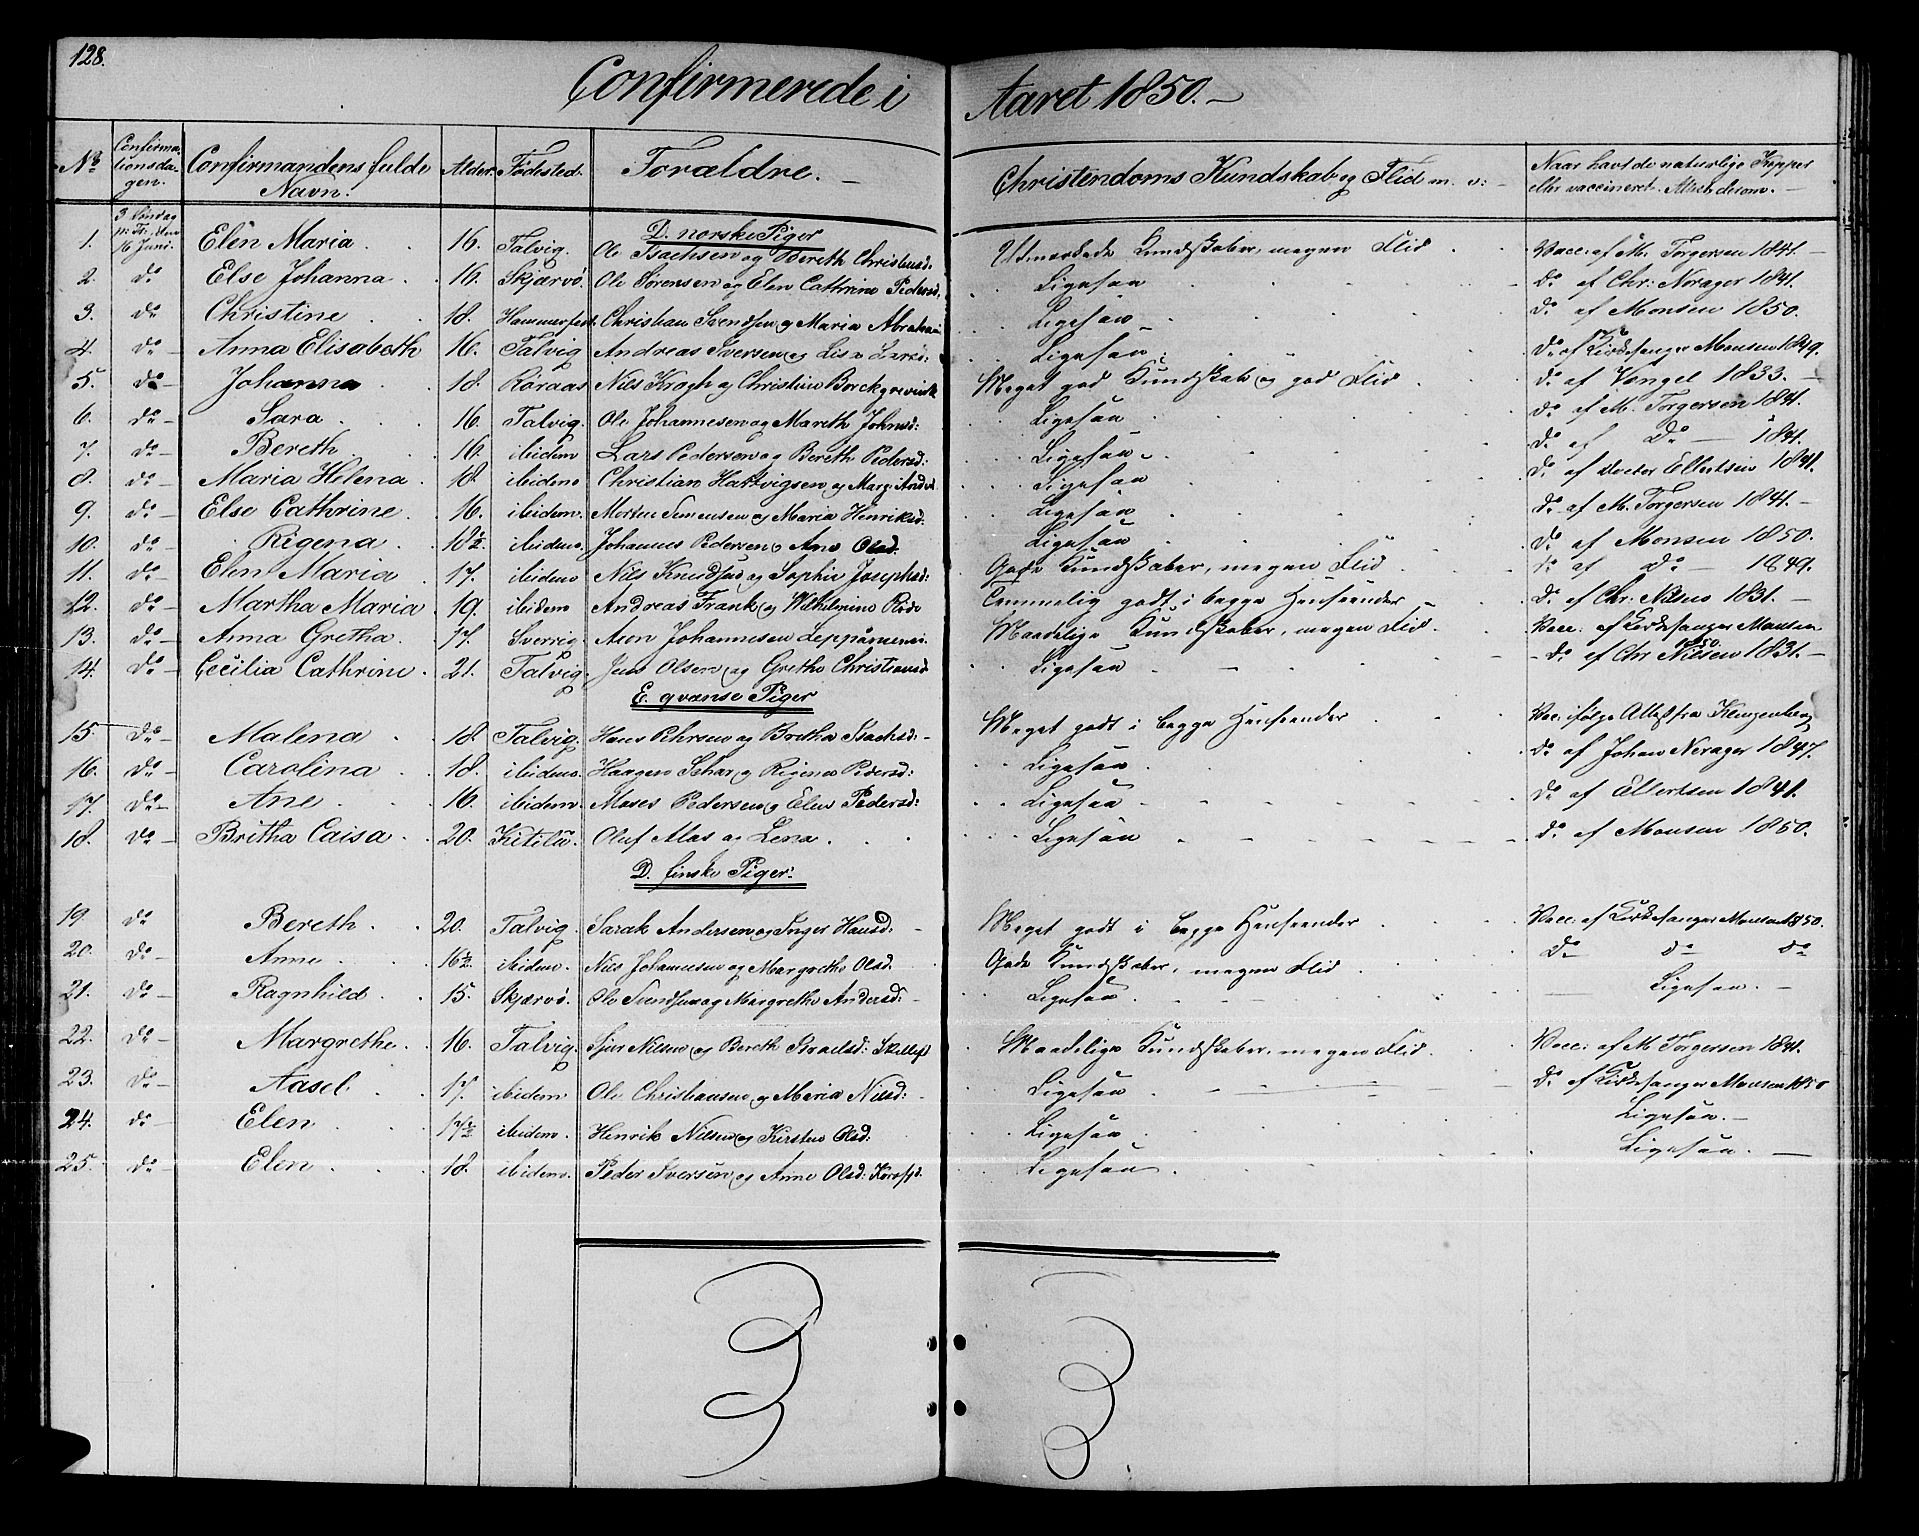 128.
Confirmerede i Aaret 1850.
No Confirmationsdagen. Confirmandens fulde Navn. Alder. Fødested. Forældre. Christendoms Kundskab og Flid m. v: Naar havt de naturlige Kopper eller vaccineret. Attest derom.
D. norske Piger
1. 3 Søndag p: Tr:, den 16 Juni. Elen Maria 16. Talvig. Ole Isachsen og Bereth Christensd: Udmærkede Kundskaber, megen Flid Vacc: af M. Torgersen 1841.
2. do Else Johanna 16. Skjærvö. Ole Sørensen og Elen Cathrine Pedersd. Ligesaa do af Chr: Norager 1841.
3. do Christine 18. Hammerfest. Christian Svendsen og Maria Abraham Ligesaa do af Monsen 1850.
4. do Anna Elisabeth 16. Talvig Andreas Iversen og Lisa Ligesaa do af Kirkesanger Monsen 1849.
5. do Johanna 18. Röraas Nils Krogh og Christine Borchgrevink Meget god Kundskab og god Flid do af Vangel 1833.
6. do Sara 16. Talvig. Ole Johannesen og Mareth Johnsd: Ligesaa do af M. Torgersen 1841.
7. do Bereth 16. ibidem Lars Pedersen og Bereth Pedersd: Ligesaa do af do 1841.
8. do Maria Helena 18. ibidem Christian Hartvigsen og Marg: Andersd Ligesaa do af Doctor Ellertsen 1841.
9. do Else Cathrine 16. ibidem. Morten Simensen og Maria Henriksd: Ligesaa do af M. Torgersen 1841.
10. do Rigena 18½. ibidem. Johannes Pedersen og Ane Olsd. Ligesaa do af Monsen 1850.
11. do Elen Maria 17. ibidem Nils Knudsen og Sophie Josephsd: Gode Kundskaber, megen Flid do af do 1849.
12. do Martha Maria 19. ibidem Andreas Frank og Wilhelmine Rode Temmelig godt i begge Henseender do af Chr. Nilsen 1831.
13. do Anna Gretha 17. Sverrig. Aron Johannesen Leppäniemi Maadelige Kundskaber, megen Flid. Vacc: af Kirkesanger Monsen 1850.
14. do Cecilia Cathrine 21. Talvig. Jens Olsen og Grethe Christiansd Ligesaa do af Chr Nilsen 1831.
E. qvænse Piger
15. do Malena 18. Talvig. Hans Pehrsen og Britha Isachsd: Meget godt i begge Henseender Vac: ifølge Attest fra Klingenberg
16. do Carolina 18. ibidem. Haagen Schar og Rigena Pedersd: Ligesaa do af Johan Norager 1847.
17. do Ane 16. ibidem. Moses Pedersen og Elen Pedersd: Ligesaa do af Ellertsen 1841.
18. do Britha Caisa 20. Kitilä. Oluf Alas og Lena Ligesaa do af Monsen 1850.
D. finske Piger.
19. do Bereth 20. Talvig. Sarak Andersen og Inger Hansd: Meget godt i begge Henseender Vacc: af Kirkesanger Monsen 1850.
20. do Anne 16½ ibidem. Nils Johannesen og Margrethe Olsd. Gode Kundskaber, megen Flid do do do
21. do Ragnhild 15. Skjærvö. Ole Svendsen og Margrethe Andersd: Ligesaa Ligesaa.
22. do Margrethe 16. Talvig. Sjur Nilsen og Bereth Israelsd: Skillefj Maadelige Kundskaber, megen Flid. Vacc: af M Torgersen 1841.
23. do Aasel 17. ibidem Ole Christiansen og Maria Nilsd: Ligesaa do af Kirkesanger Monsen 1850
24. do Elen 17½ ibidem. Henrik Nilsen og Kirsten Olsd: Ligesaa Ligesaa.
25. do Elen 18. ibidem. Peder Iversen og Anne Olsd: Korsfjd. Ligesaa Ligesaa.